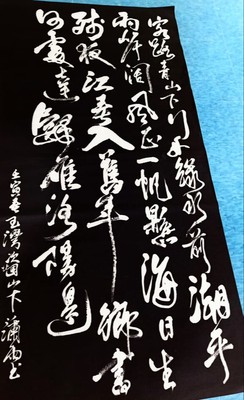 客路青山下行舟綠水前潮平
兩岸闊風正一帆懸海日生
殘夜江春入舊年鄉書
何處達歸雁洛陽邊
壬寅春王灣次固山下瀟雨书